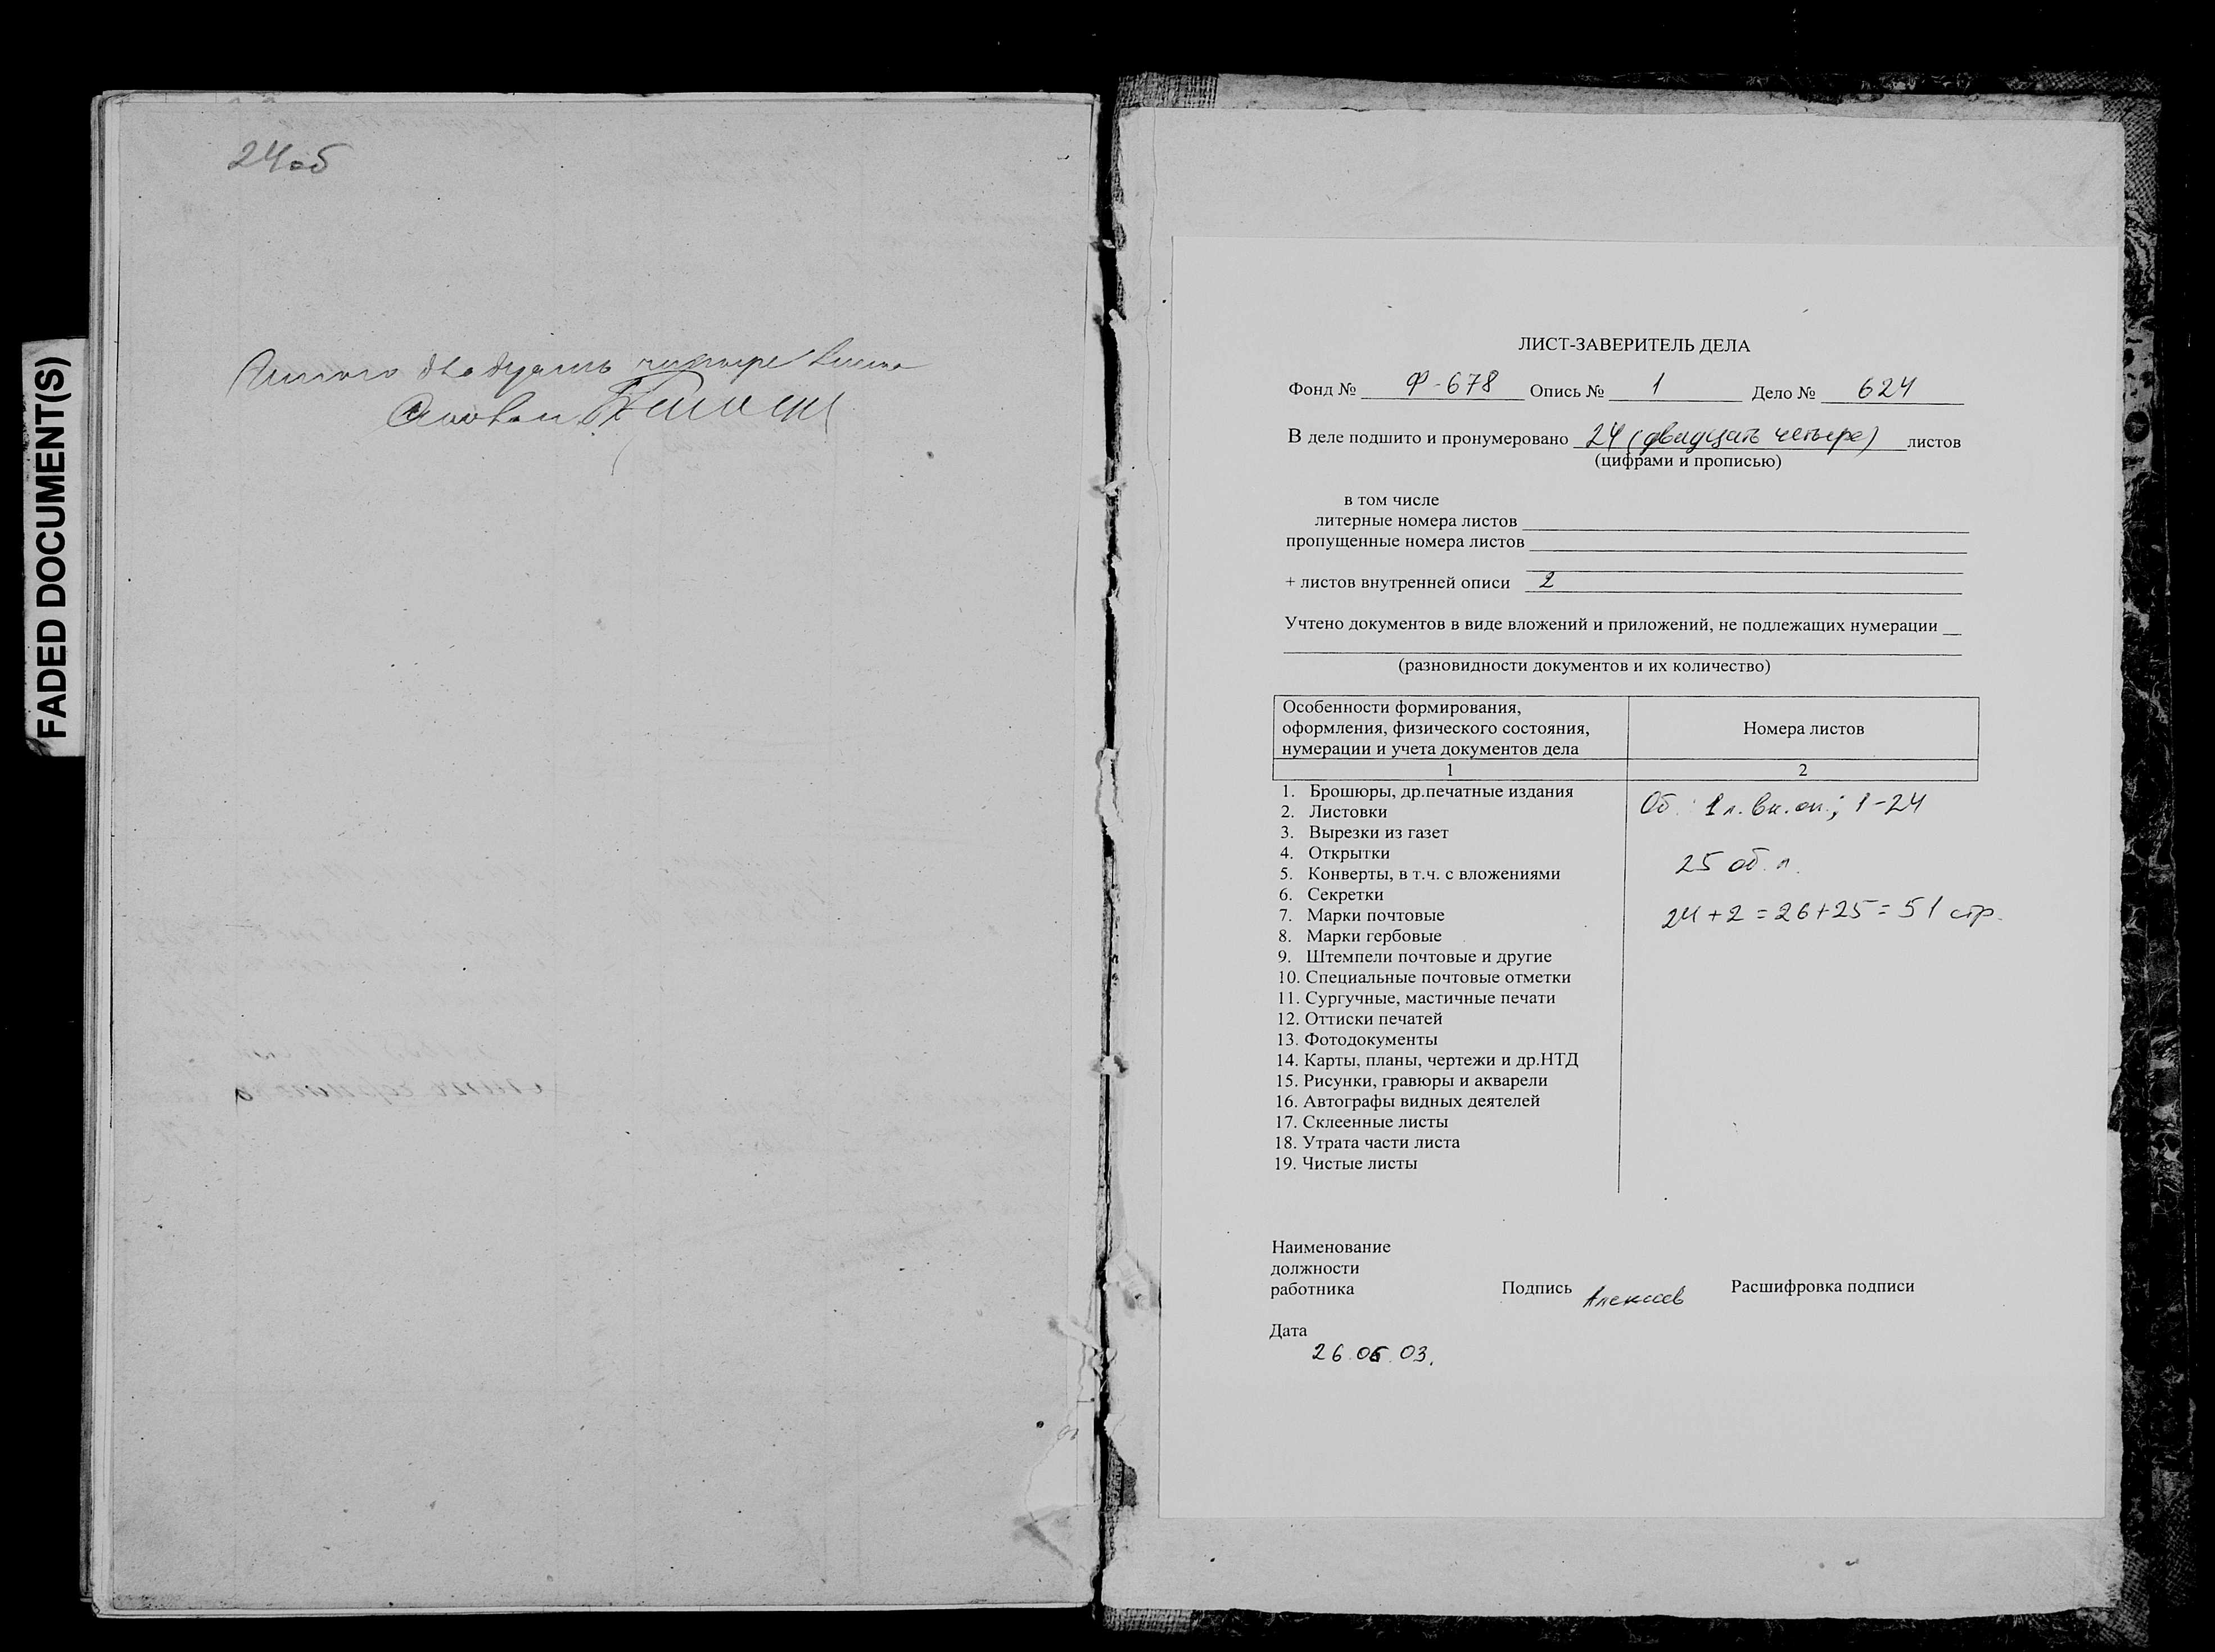 FADED DOCUMENT(S)
24об
двадцать четыре листа
ЛИСТ-ЗАВЕРИТЕЛЬ ДЕЛА
Фонд № Ф-678 Опись № 1 Дело № 624
В деле подшито и пронумеровано 24 (двадцать четыре) листов
(цифрами и прописью)
в том числе
литерные номера листов
пропущенные номера листов
+ листов внутренней описи 2
Учтено документов в виде вложений и приложений, не подлежащих нумерации
(разновидности документов и их количество)
Особенности формирования,
оформления, физического состояния,
нумерации и учета документов дела
Номера листов
1 2
1. Брошюры, др.печатные издания
2. Листовки
3. Вырезки из газет
4. Открытки
5. Конверты, в т.ч. с вложениями
6. Секретки
7. Марки почтовые
8. Марки гербовые
9. Штемпели почтовые и другие
10. Специальные почтовые отметки
11. Сургучные, мастичные печати
12. Оттиски печатей
13. Фотодокументы
14. Карты, планы, чертежи и др.НТД
15. Рисунки, гравюры и акварели
16. Автографы видных деятелей
17. Склеенные листы
18. Утрата части листа
19. Чистые листы
Об. 1 л. вн. оп.; 1-24
25 об. л.
24+2=26+25=51 стр.
Наименование
должности
работника
Подпись Расшифровка подписи
Дата
26.05.03.